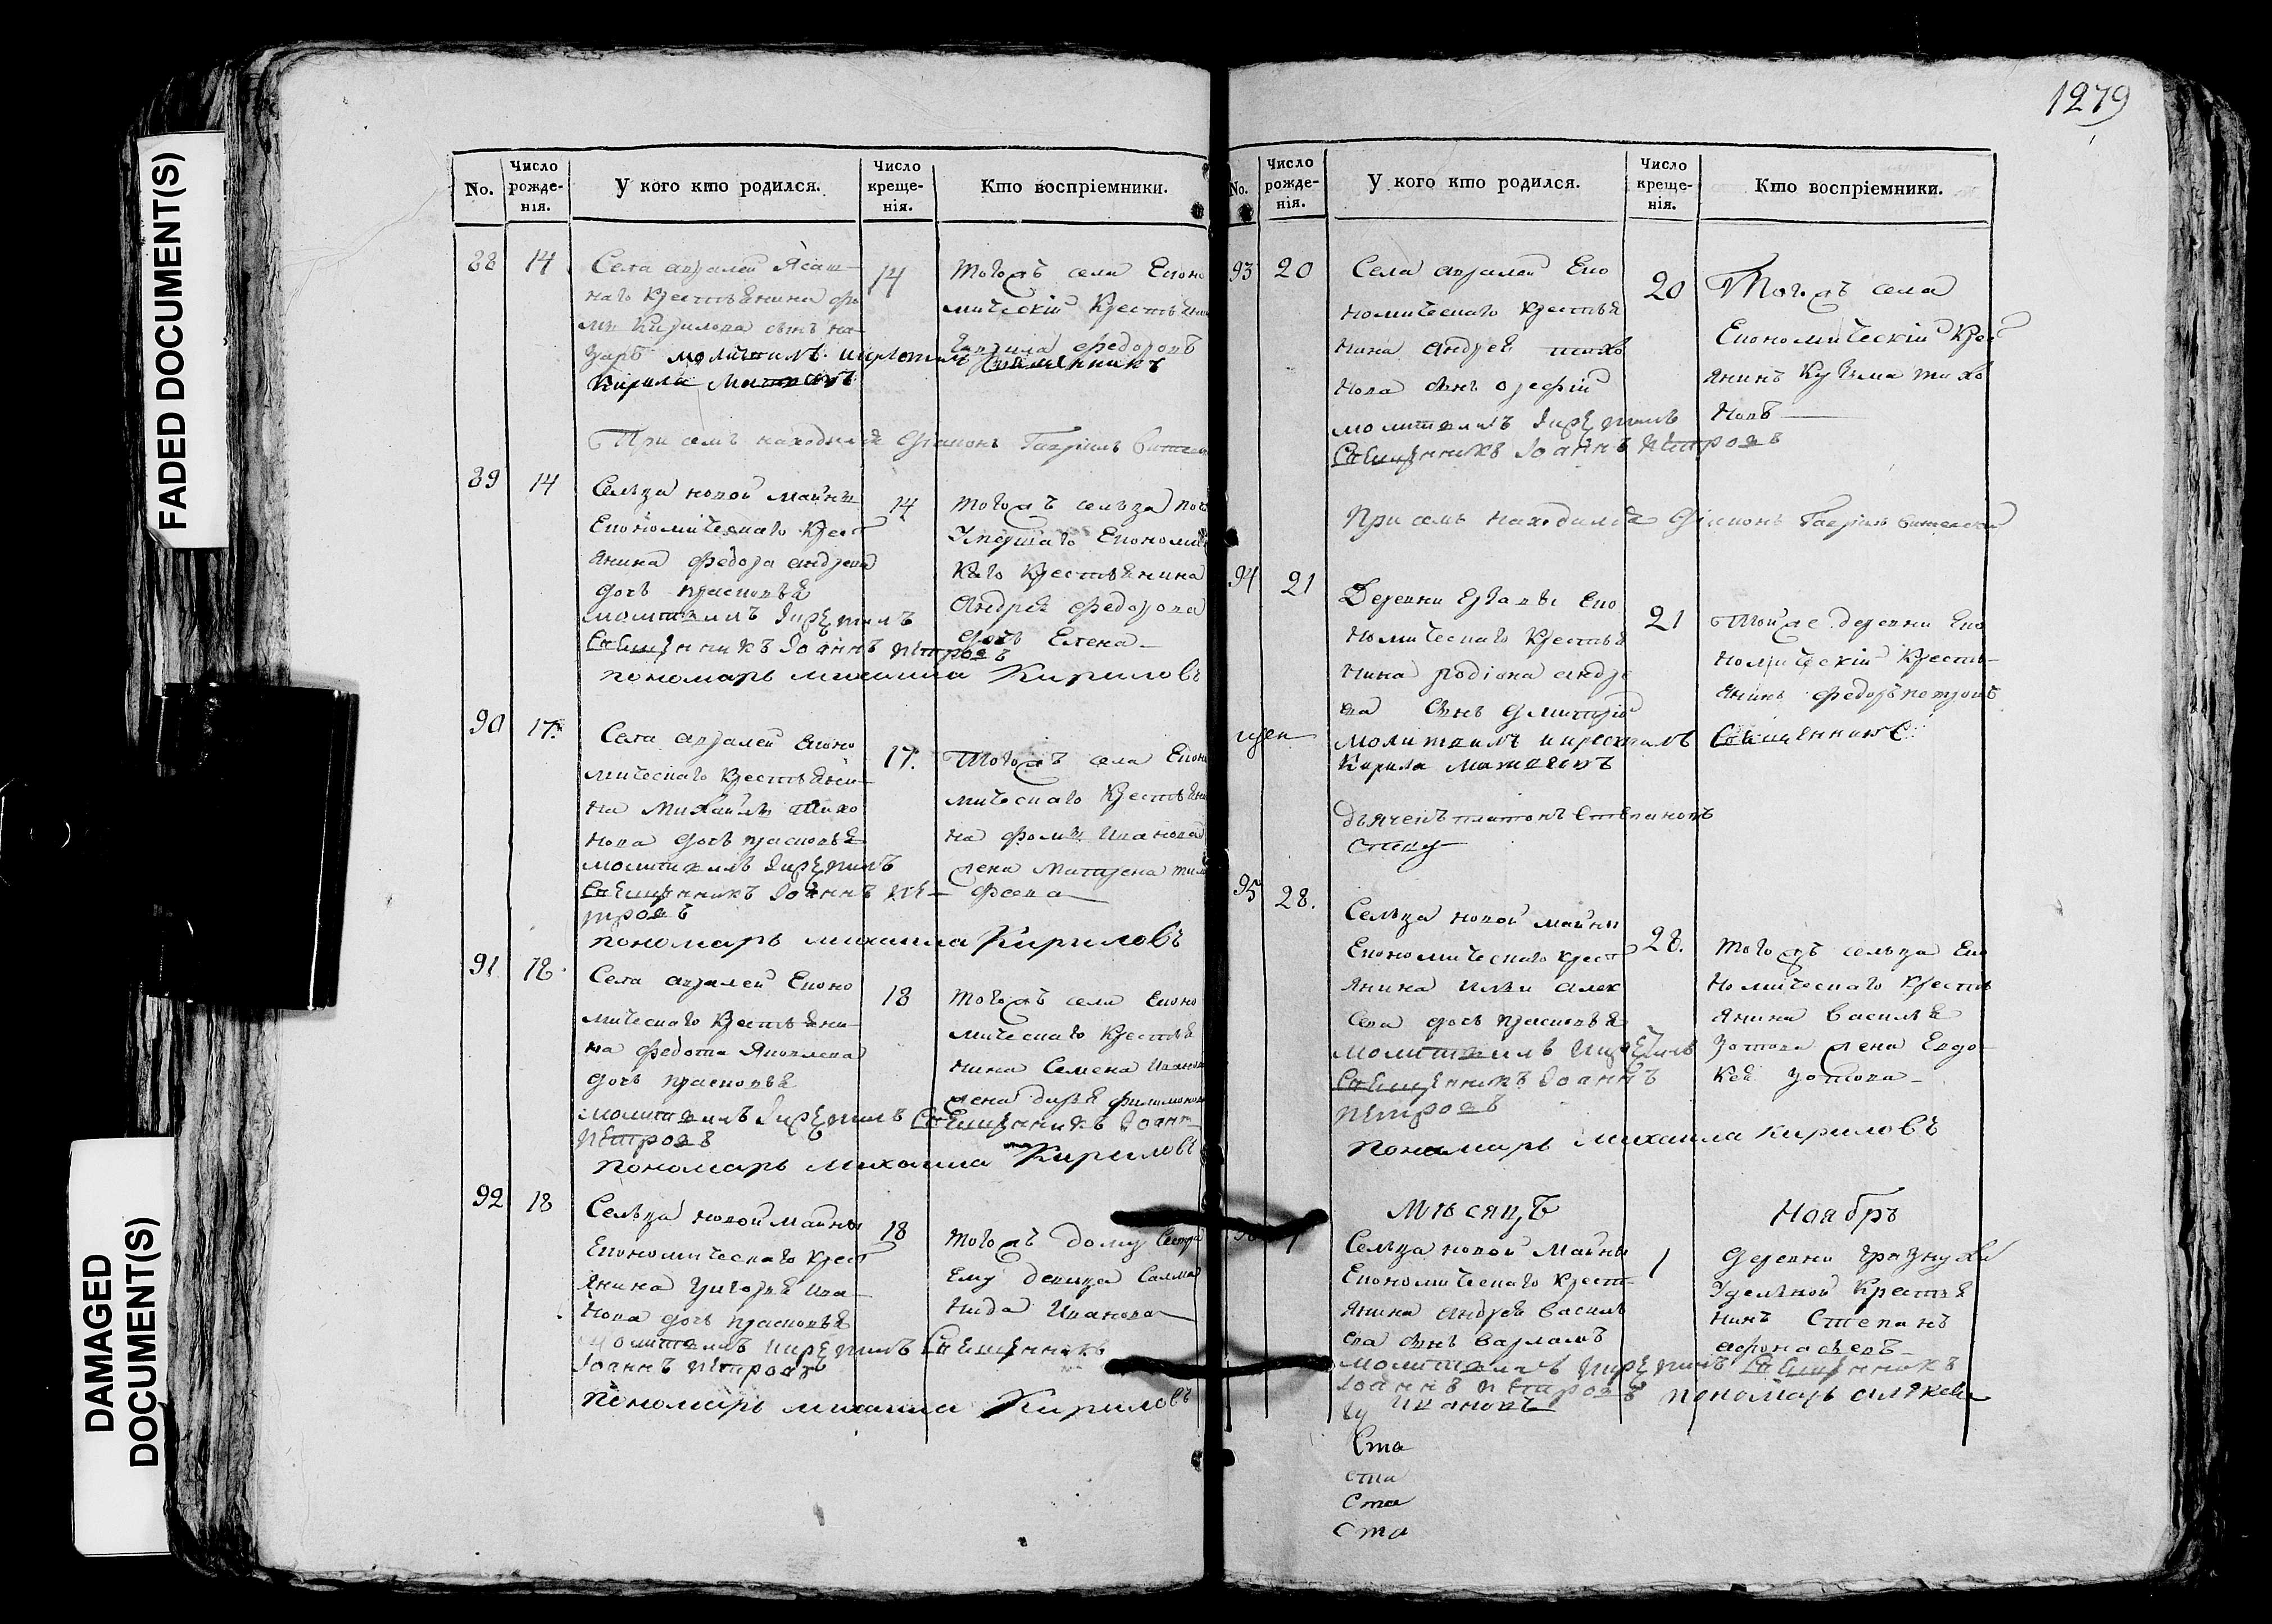 1279
FADED DOCUMENT(S)
DAMAGED
DOCUMENT(S)
No.
Число рожденія.
У кого кто родился.
Число крещенія.
Кто воспріемники.
88 14 14
Села авралей Ясаш-
наго крестьянина фо
мы Кирилова сынъ на-
заръ молитвилъ икрестилъ Священникъ
Кирила Матвеевъ
тогожъ села Еконо
мическій крестьяни
Гаврила федоровъ
При семъ находился Діаконъ Гавріилъ
89 14 14
Сельца новой майны
Економическаго крест
янина федора андреева
дочь прасковья
молитвилъ Iкрестилъ
Священникъ Iоаннъ Петровъ
пономарь михаила Кириловъ
тогожъ сельца
Умершаго Економич
каго крестьянина
Андрея федорова
дочь Елена
90 17. 17.
Села авралей Еконо
мическаго крестьяни-
на Михайлы тихо
нова дочь прасковья
молитвилъ Iкрестилъ
Священникъ Iоаннъ пе-
тровъ
пономарь михаила Кириловъ
Тогожъ села Еконо
мическаго крестьяни
на фомы Иванова
жена Матрена тимо
феева
91 18. 18
Села авралей Еконо
мическаго крестьяни-
на федота Яковлева
дочь прасковья
молитвилъ Iкрестилъ Священникъ Iоаннъ
Петровъ
пономарь михаила Кириловъ
тогожъ села Еконо
мическаго крестья
нина Семена Иванова
жена дарья филимонова
92 18 18
Сельца новой майны
Економическаго крест
янина григорья Ива-
нова дочь прасковья
молитвилъ икрестилъ Священникъ
Iоаннъ Петровъ
пономарь михаила Кириловъ
тогожъ дому сестра
Ему девица Салма
нида Иванова
No.
Число рожденія.
У кого кто родился.
Число крещенія.
Кто воспріемники.
93 20 20
Села авралей Еко
номическаго крестья
нина андрея тихо
нова сынъ орефій
молитвилъ Iкрестилъ
Священникъ Iоаннъ Петровъ
Тогожъ села
Економическій крес
янинъ Кузьма тихо
новъ
При семъ находился Діаконъ Гавріилъ
94 21 21
Деревни Ерзавы Еко
номическаго крестья
нина родіона андре
ева сынъ дмитрій
молитвилъ икрестилъ Священникъ
Кирила Матвеевъ
дьячекъ платонъ Степановъ
Тойже деревни Еко
номическій крестья-
янинъ федоръ петровъ
95 28. 28.
Сельца новой майны
Економическаго крест
янина Ильи алек
сева дочь прасковья
молитвилъ Iкрестилъ
Священникъ Iоаннъ
Петровъ
пономарь михаила кириловъ
тогожъ сельца Еко
номическаго крестья
янина василья
Зотова жена Евдо-
кея Зотова
Мѣсяцъ Ноябрь
1 1
Сельца новой майны
Економическаго крест-
янина андрея василь
ева сынъ варламъ
молитвилъ Iкрестилъ Священникъ
Iоаннъ Петровъ пономарь алѣксеи
Ивановъ
деревни грязнухи
Удельной крестья
нинъ Степанъ
афонасьевъ
Ста
ста
Ста
ста